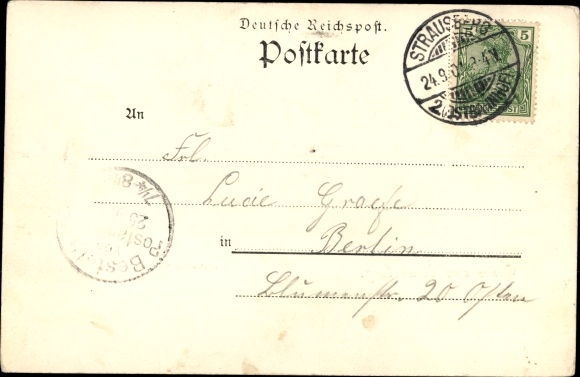 Deutsche Reichspost.
Postkarte
STRAUSBERG
5
24.9.
2.(OSTBAHN)
An
Frl.
Lucie Graefe
in Berlin
Blumenstr. 20 Osten
Bestellt